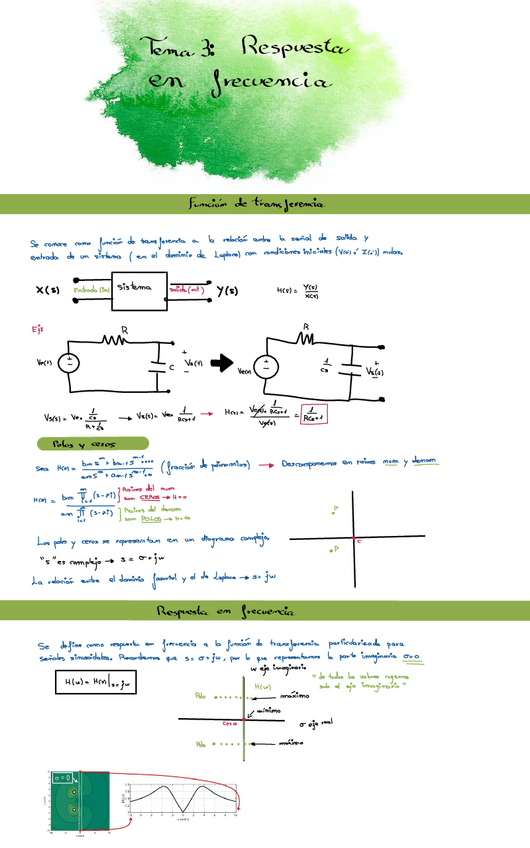 Tema 3: Respuesta
en frecuencia
Función de transferencia
Se conoce como función de transferencia a la relación entre la señal de salida y
entrada de un sistema (en el dominio de Laplace) con condiciones iniciales nulas.
X(s) entrada (in) sistema salida (out) Y(s) H(s) = Y(s)/X(s)
Ej:
R
Ve(t) + - C + Vs(t) -
R
Ve(s) + - 1/cs + Vs(s) -
→ H(s) = = 1/RCs+1
Polos y ceros
Sea H(s) = (fracción de polinomios) → Descomponemos en raíces num y denom
H(s) = Raíces del num
son CEROS → H=0
Raíces del denom
son POLOS → H=∞
P
c
P
Los polos y ceros se representan en un diagrama complejo.
"s" es complejo → s = σ+jw
La relación entre el dominio fasorial y el de Laplace → s = jw
Respuesta en frecuencia
Se define como respuesta en frecuencia a la función de transferencia particularizada para
señales sinusoidales. Recordemos que s = σ+jw, por lo que representamos la parte imaginaria σ=0
w eje imaginario
H(w) = H(s)|s=jw
H(w)
"de todos los valores cogemos
solo el eje imaginario"
Polo máximo
mínimo
Cero σ eje real
Polo máximo
σ = 0